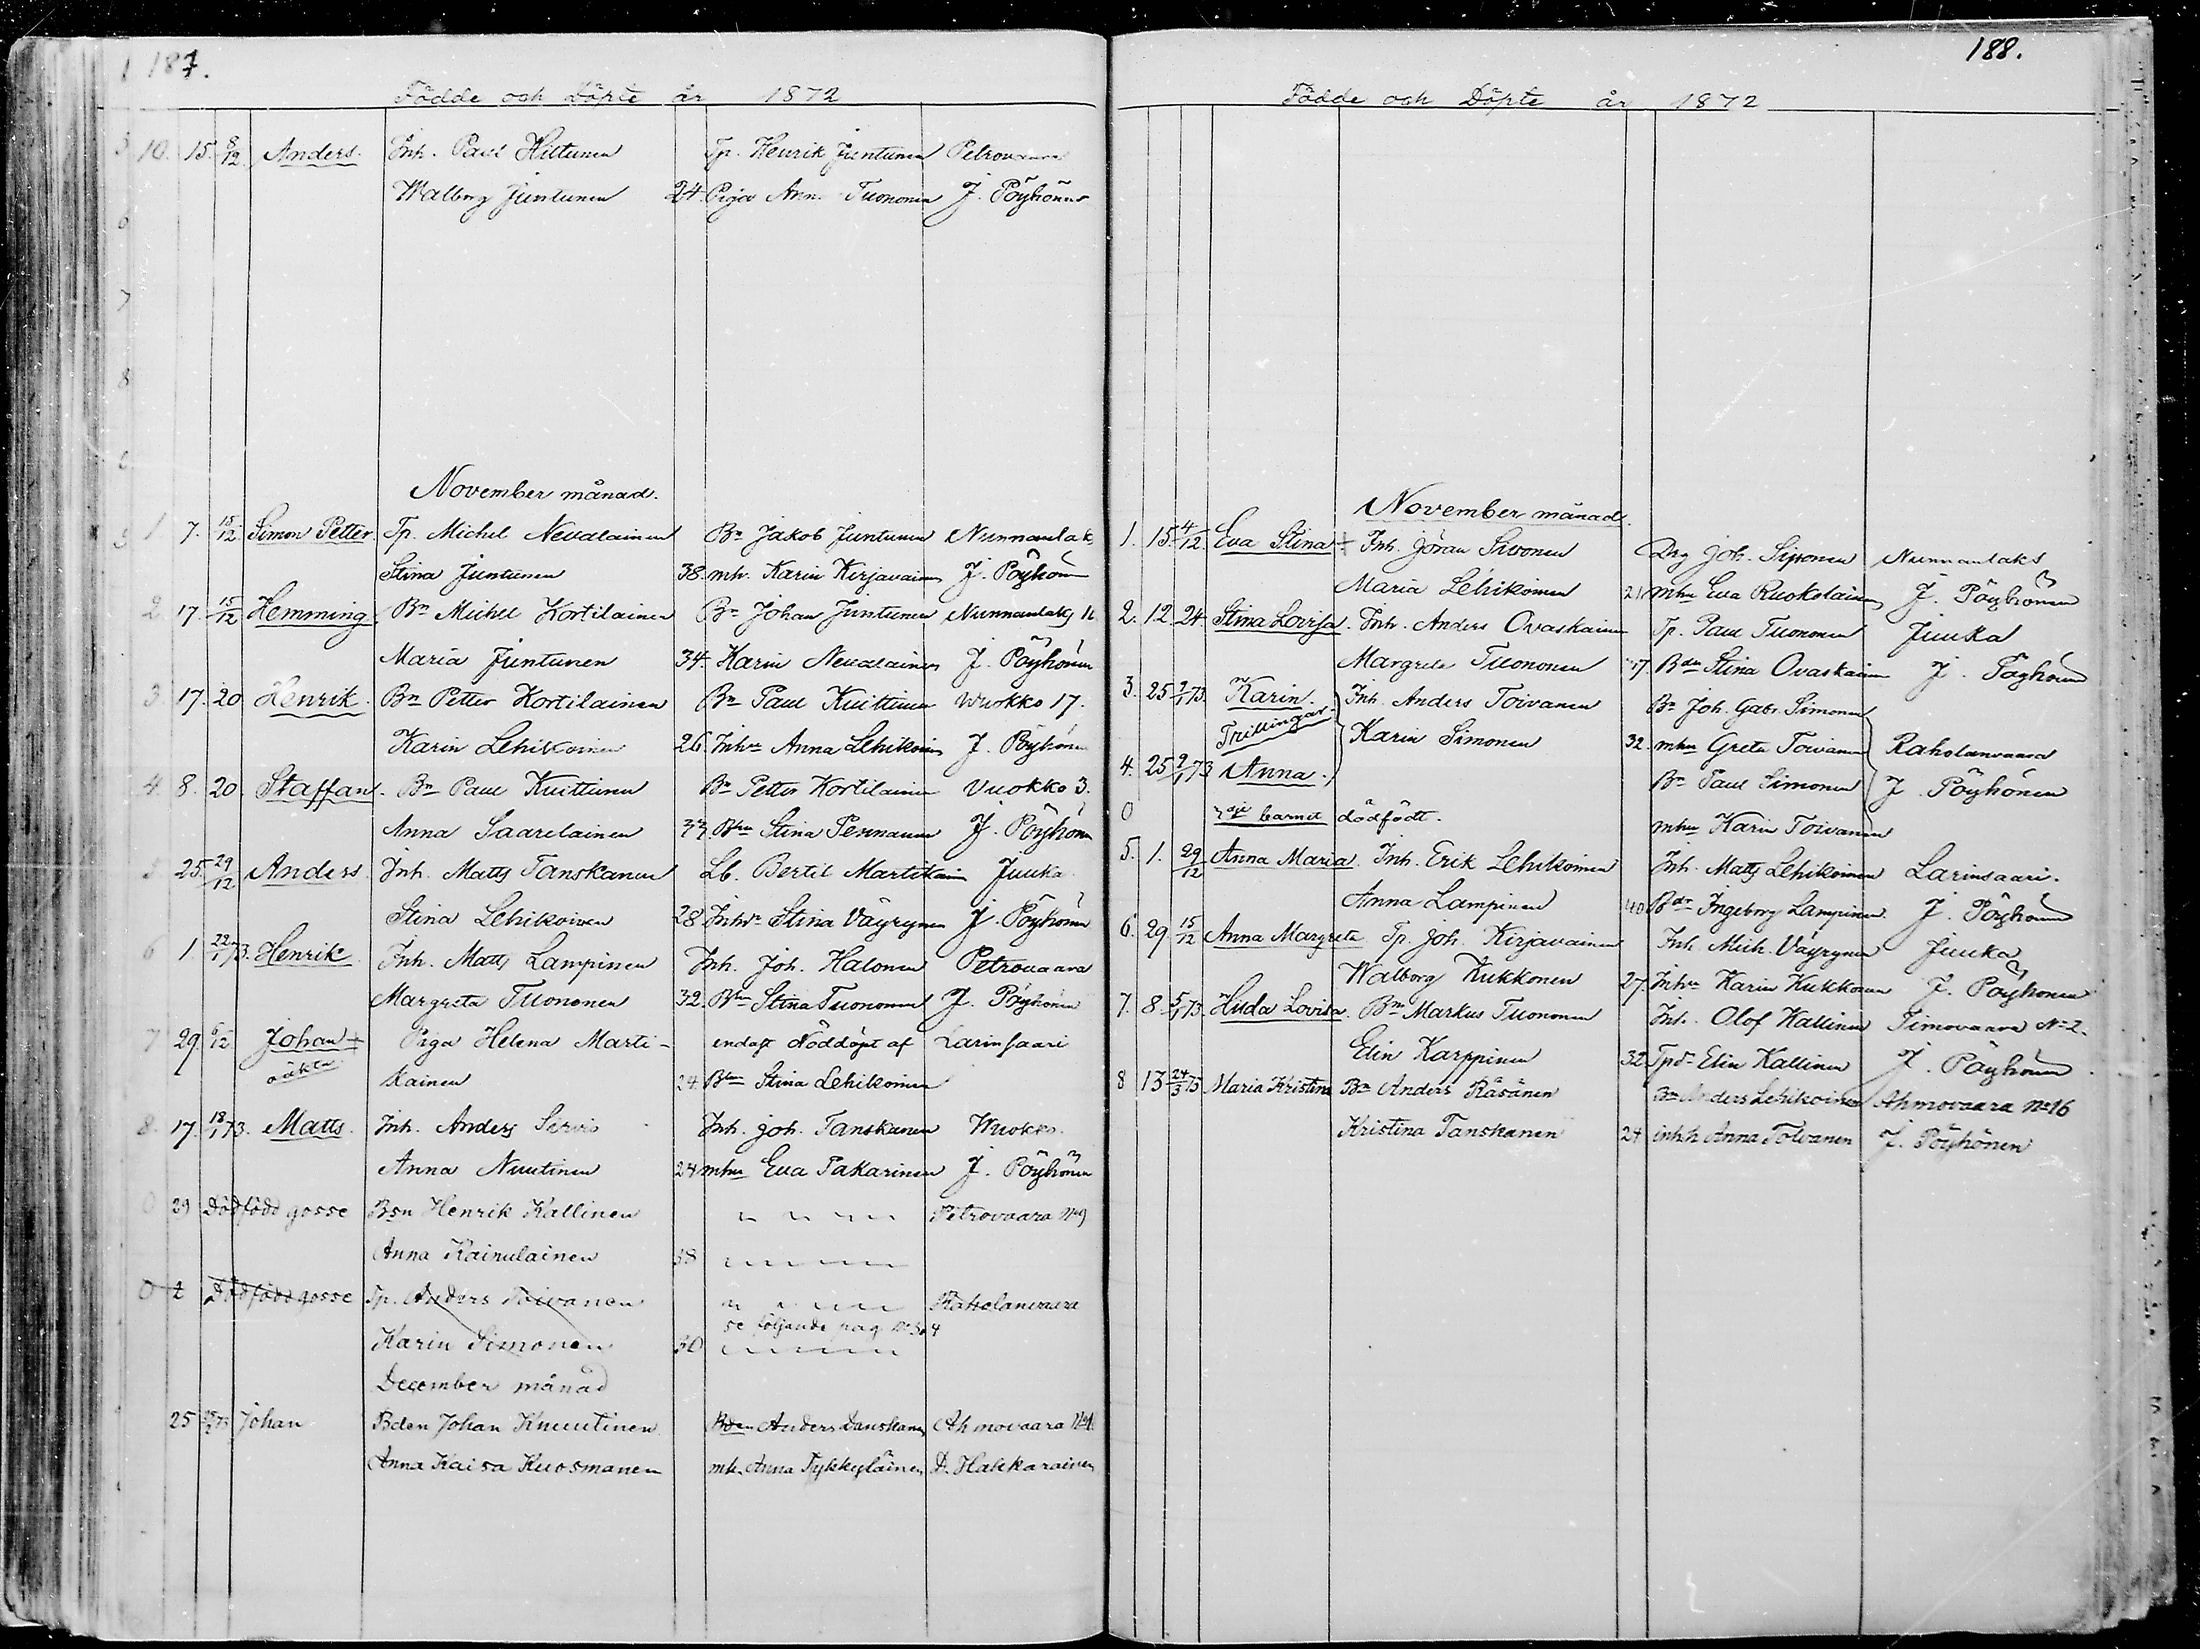 187.
Födde och Döpte år 1872
10. 15. 8/12 Anders. Inh. Paul Hiltunen Tp. Henrik Juntunen Petrovaara
Walborg Juntunen 24. Piga Ann. Tuononen J. Pöyhönen
November månad.
1. 7. 15/12 Simon Petter Tp. Michel Nevalainen Bn Jakob Juntunen Nunnanlaks
Stina Juntunen 38. mh. Karin Kirjavainen J. Pöyhönen
2 17. 15/12 Hemming Bn Michel Kortilainen Bn Johan Juntunen Nunnanlaks 11
Maria Juntunen 34. Karin Nevalainen J. Pöyhönen
3 17. 20 Henrik. Bn Petter Kortilainen Bn Paul Kuittinen Wuokko 17.
Karin Lehikoinen 26. Inhn Anna Lehikoinen J. Pöyhönen
4 8. 20. Staffan. Bn Paul Kuittinen Bn Petter Kortilainen Vuokko 3.
Anna Saarelainen 37. Bdn Stina J. Pöyhönen
5 25. 29/12 Anders. Inh. Matts Tanskanen Lb. Bertil Martikain Juuka
Stina Lehikoinen 28 Inhdr Stina Väyrynen J. Pöyhönen
6 1. 22/1 73. Henrik Inh. Matts Lampinen Inh. Joh. Halonen Petrovaara
Margreta Tuononen 32. Bdn Stina Tuononen J. Pöyhönen
7 29. 6/12 Johan + Piga Helena Marti- endast Nöddöpt af Larinsaari
oäkta kainen 24 Bdn Stina Lehikoinen
8. 17. 18/1 73. Matts. Inh. Anders Sirviö Inh. Joh. Tanskanen Wuokko.
Anna Nuutinen 24 mhn Eva Pakarinen J. Pöyhönen
0 29 Dödfödd gosse Bsn Henrik Kallinen Petrovaara No 9
Anna Kainulainen 38
0 2 Dödfödd gosse Tp. Anders Toivanen Raholanvaara
se följande pag No 3 o 4
Karin Simonen 30
December månad
25 Johan Bden Johan Knuutinen Bden Anders Danskanen Ahmovaara No 1.
Anna Kaisa Kuosmanen mh. Anna Tykkyläinen D. Hakkarainen
188.
Födde och Döpte år 1872
November månad.
1. 15. 4/12 Eva Stina + Inh. Jöran Sivonen Drg Joh. Siponen Nunnanlaks
Maria Lehikoinen 21 mhn Eva Ruokolainen J. Pöyhönen
2. 12. 24. Stina Lovisa. Inh. Anders Ovaskainen Tp. Paul Tuononen Juuka
Margreta Tuononen 17. Bdn Stina Ovaskainen J. Pöyhönen
3. 25 2/1 73. Karin. Inh. Anders Toivanen Bn Joh. Gabr. Simonen
Trillingar Karin Simonen 32. mhn Greta Toivanen Raholanvaara
4. 25 2/1 73 Anna. Bn Paul Simonen J. Pöyhönen
0 3dje barnet dödfödt. mhn Karin Toivanen
5. 1. 29/12 Anna Maria. Inh. Erik Lehikoinen Inh. Matts Lehikoinen Larinsaari.
Anna Lampinen 40 Bdr Ingeborg Lampinen J. Pöyhönen
6. 29. 15/12 Anna Margreta Tp. Joh. Kirjavainen Inh. Mich. Väyrynen Juuka
Walborg Kukkonen 27. Inhn Karin Kukkonen J. Pöyhönen
7. 8. 5/1 73. Huda Lovisa. Bn Markus Tuononen Inh. Olof Kallinen Timovaara No 2.
Elin Karppinen 32. Tpdr Elin Kallinen J. Pöyhönen
8 13 24/3 73 Maria Kristina Bn Anders Räsänen Bn Anders Lehikoinen Ahmovaara No 16
Kristina Tanskanen 24 inh.h Anna Tolvanen J. Pöyhönen